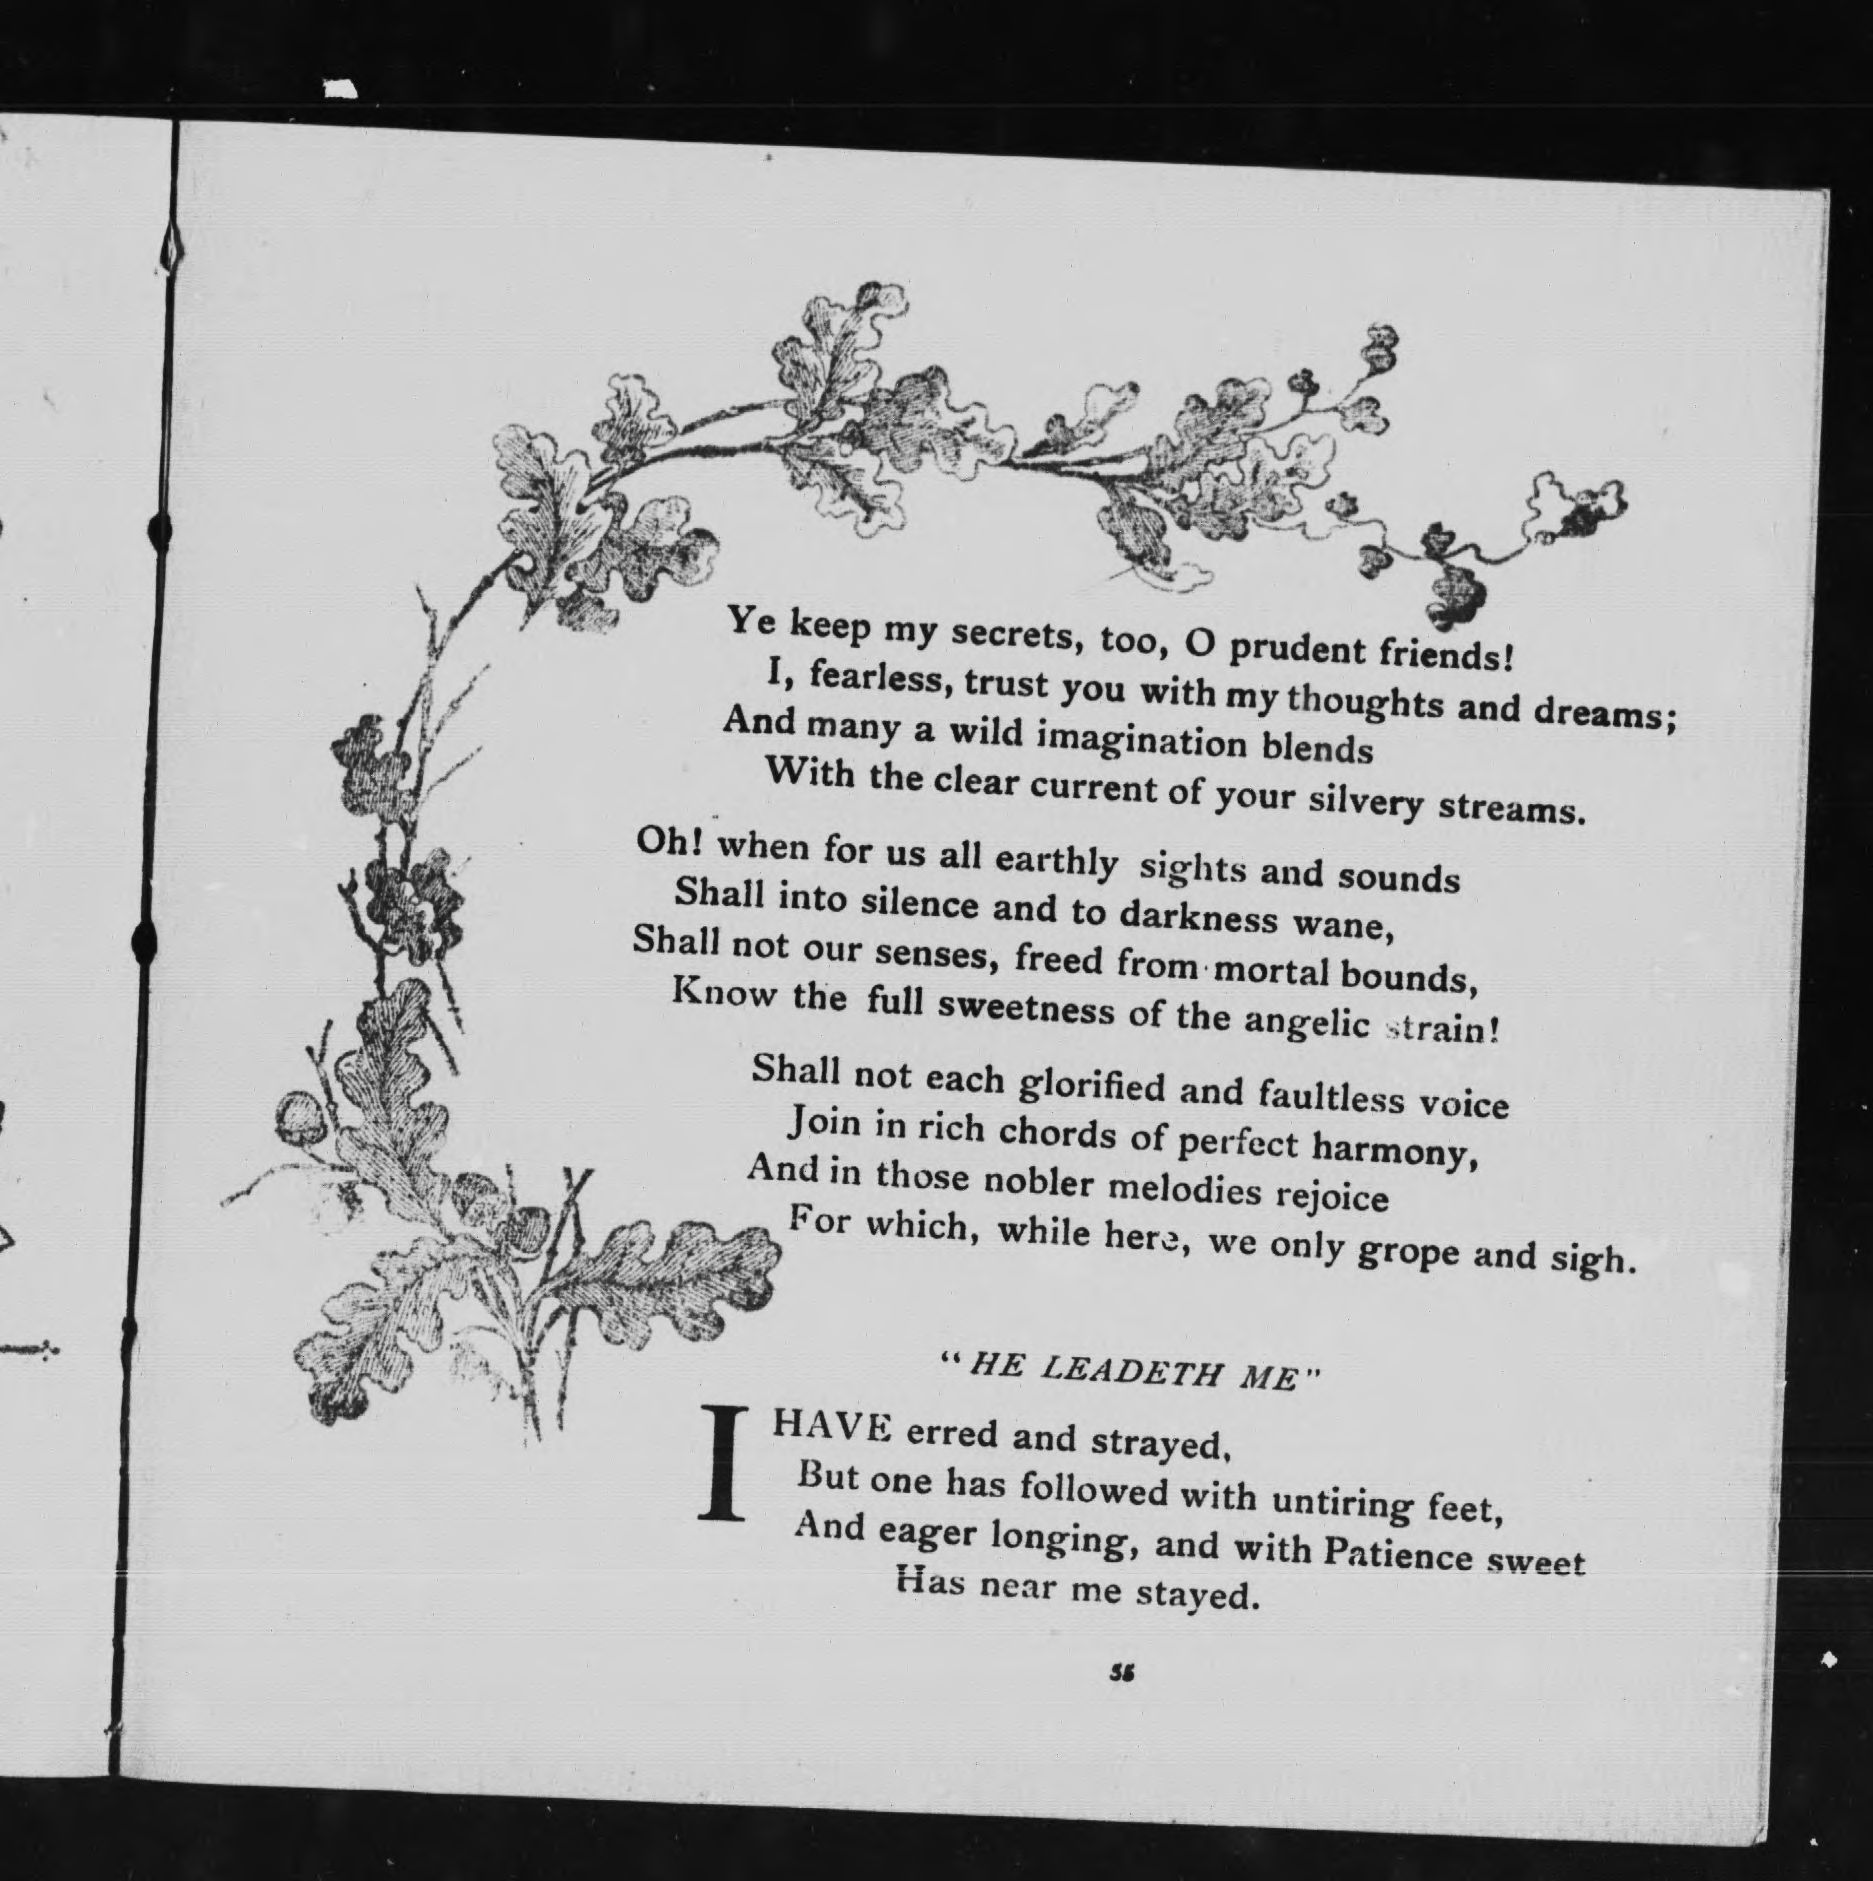 Ye keep my secrets, too, O prudent friends!
I, fearless, trust you with my thoughts and dreams;
And many a wild imagination blends
With the clear current of your silvery streams.
Oh! when for us all earthly sights and sounds
Shall into silence and to darkness wane,
Shall not our senses, freed from mortal bounds,
Know the full sweetness of the angelic strain!
Shall not each glorified and faultless voice
Join in rich chords of perfect harmony,
And in those nobler melodies rejoice
For which, while here, we only grope and sigh.
"HE LEADETH ME"
I HAVE erred and strayed,
But one has followed with untiring feet,
And eager longing, and with Patience sweet
Has near me stayed.
55